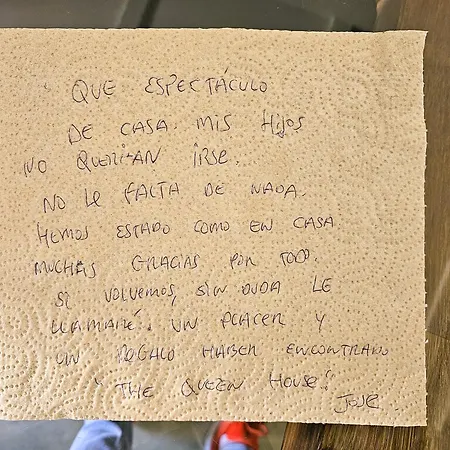 QUE ESPECTÁCULO
DE CASA. MIS HIJOS
NO QUERIAN IRSE.
NO LE FALTA DE NADA.
HEMOS ESTADO COMO EN CASA
MUCHAS GRACIAS POR TODO.
SI VOLVEMOS, SIN DUDA LE
LLAMARÉ. UN PLACER Y
UN REGALO HABER ENCONTRADO
"THE QUEEN HOUSE!